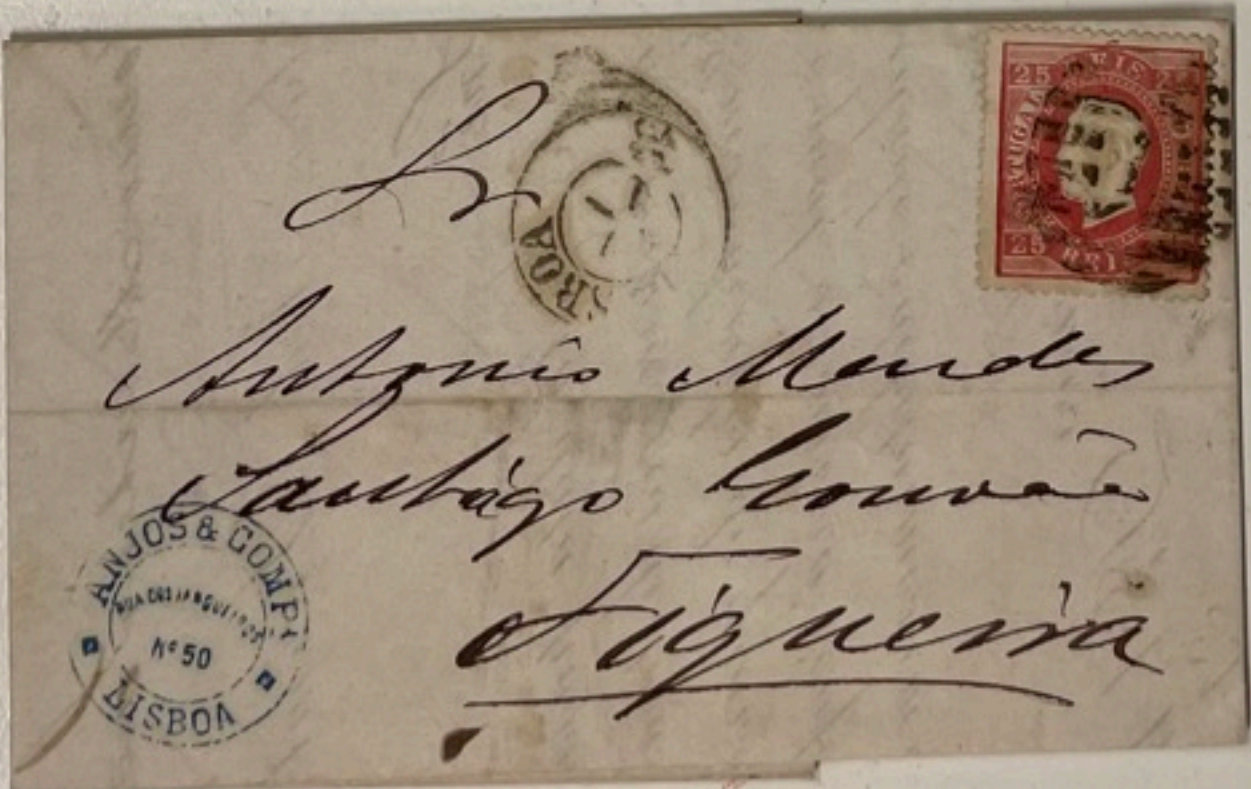 25 REIS 2
PORTUGAL
25 REI
LISBOA
Sr
Antonio Mendes
Santiágo Gouvêa
Figueira
ANJOS & COMPª
RUA DOS FANQUEIROS
Nº 50
LISBOA